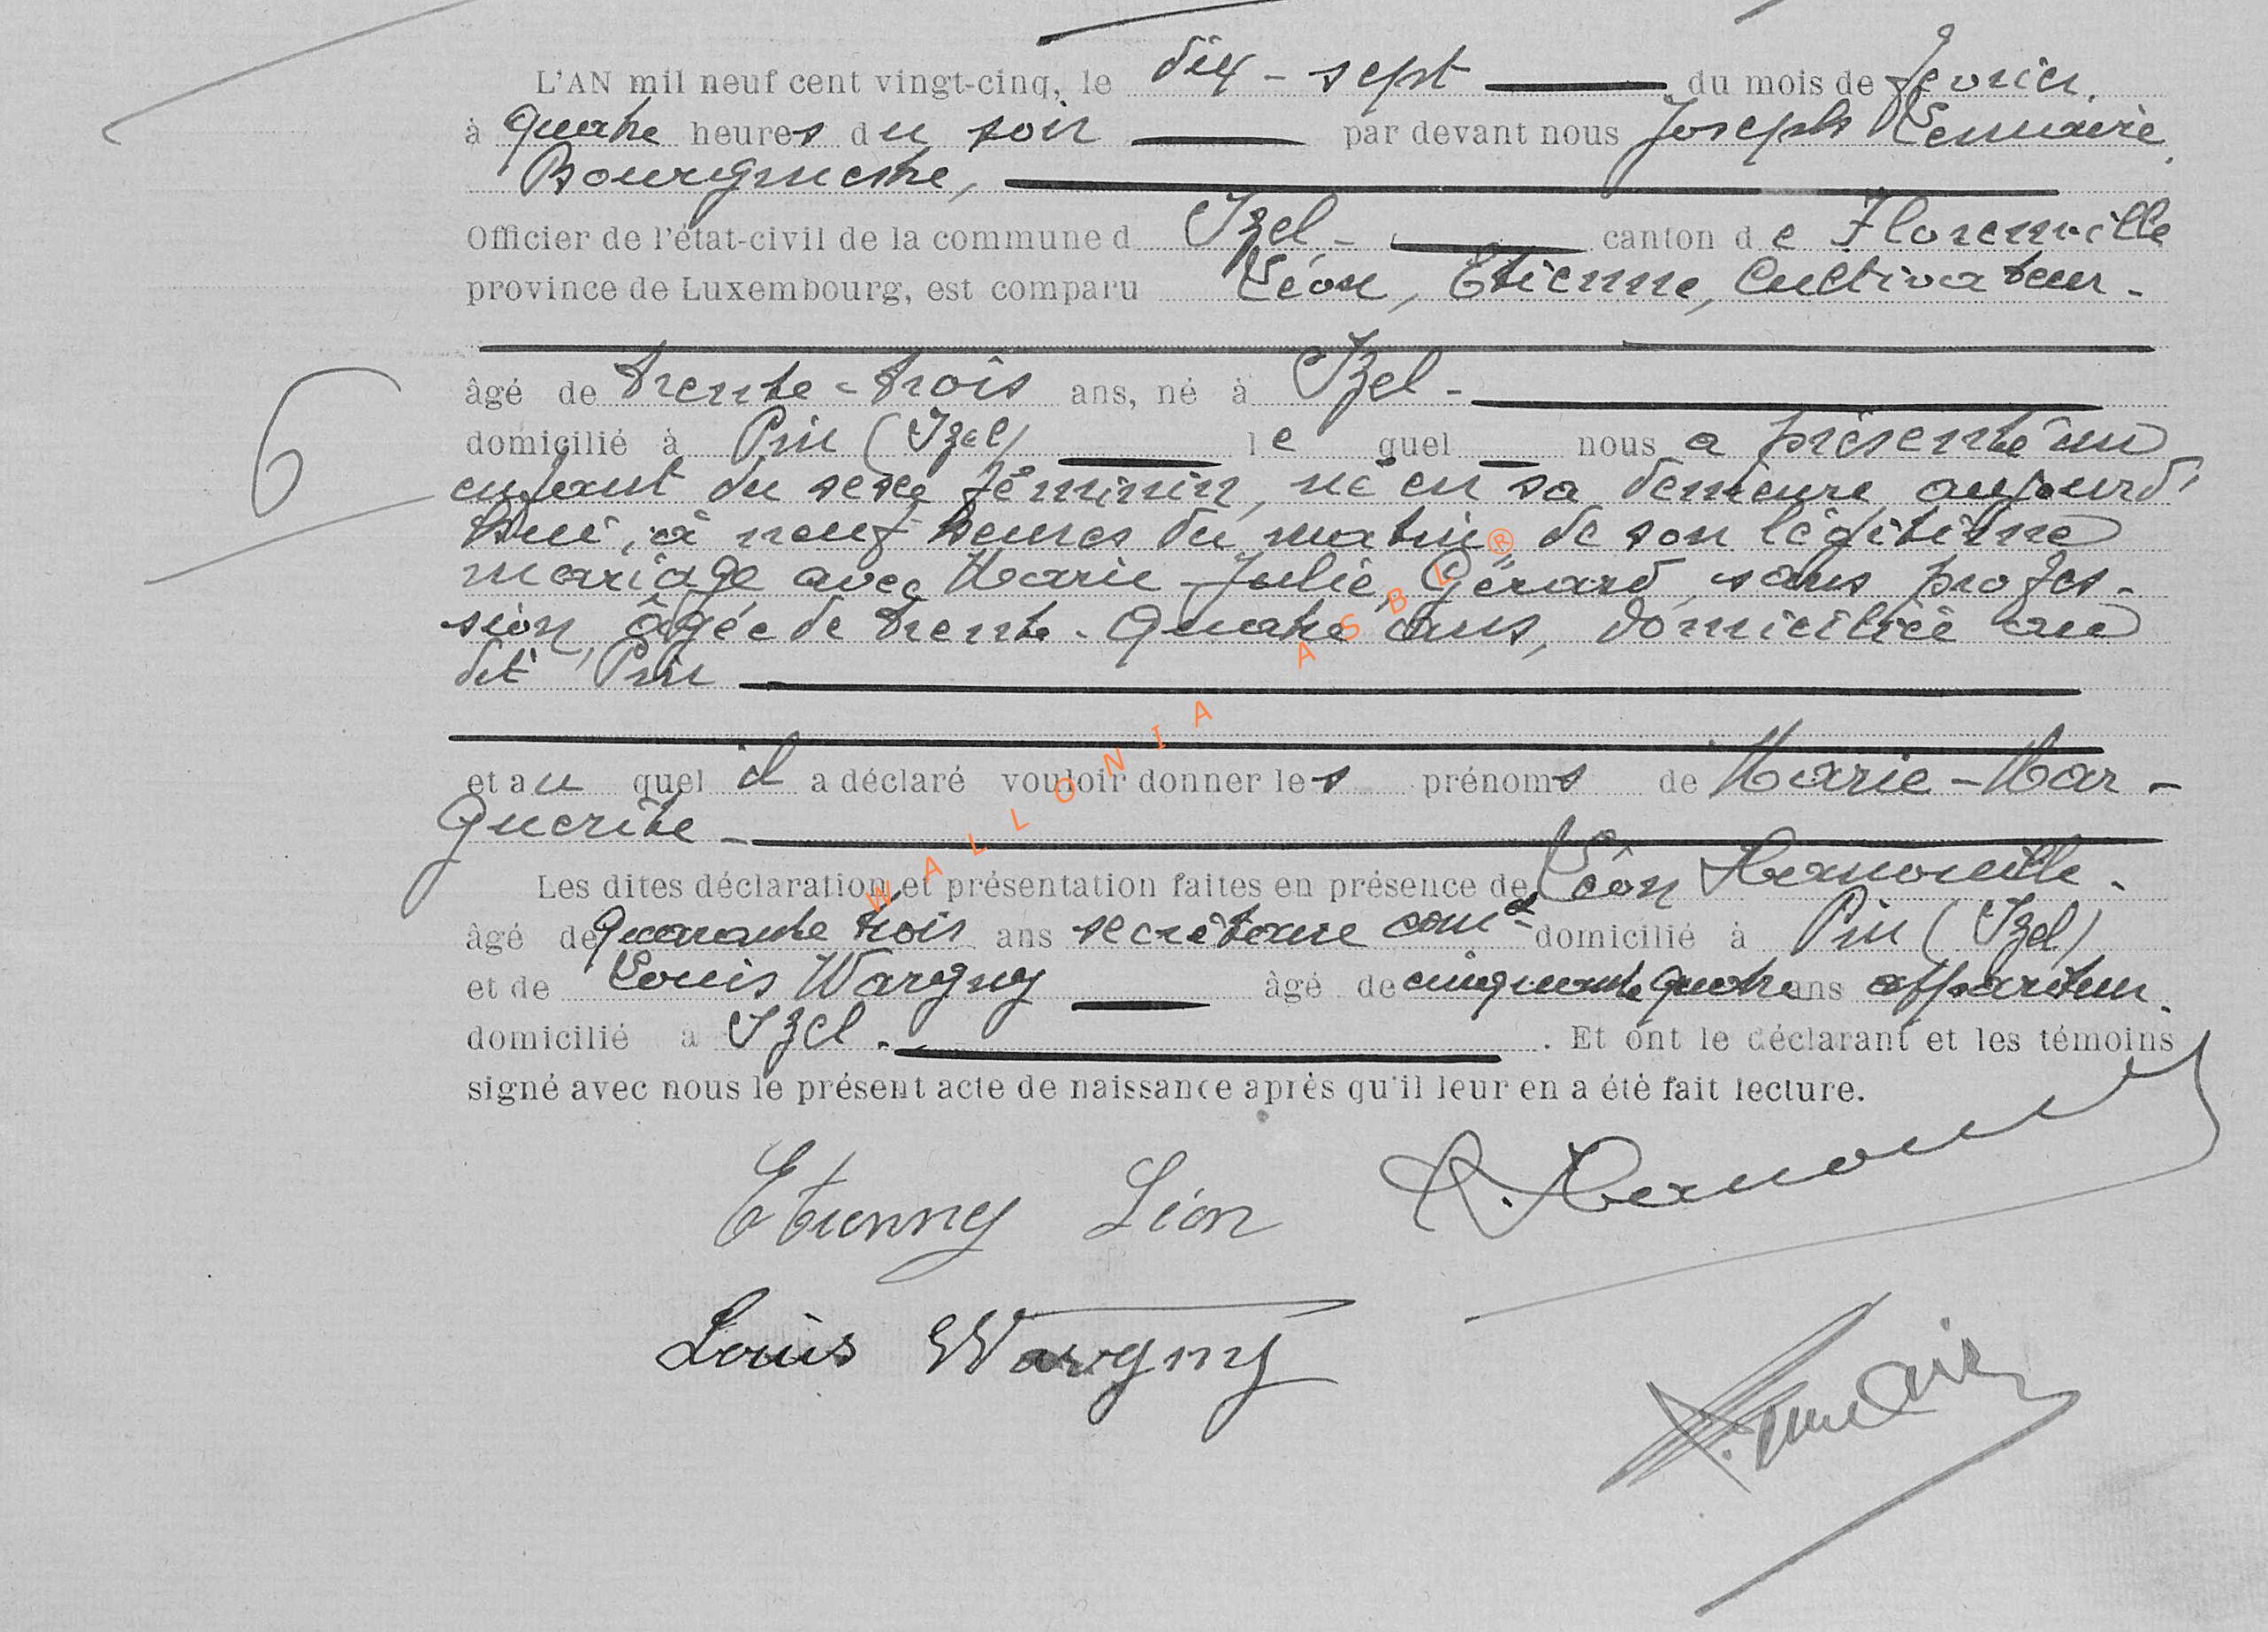 L'AN mil neuf cent vingt-cinq, le dix-sept du mois de février,
à quatre heures du soir par devant nous Joseph Lemaire,
Bourgmestre,
Officier de l'état-civil de la commune d Izel - canton de Florenville
province de Luxembourg, est comparu Léon, Etienne, Cultivateur -
âgé de trente-trois ans, né à Izel -
domicilié à Pin (Izel) le quel nous a présenté un
6
enfant du sexe féminin, né en sa demeure, aujourd'
hui, à neuf heures du matin de son légitime
mariage avec Marie-Julie, Gérard, sans profes-
sion, âgée de trente-quatre ans, domiciliée au
dit Pin -
et au quel il a déclaré vouloir donner les prénoms de Marie-Mar-
guerite -
Les dites déclaration et présentation faites en présence de Léon
âgé de quarante trois ans secrétaire comal domicilié à Pin (Izel)
et de Louis Wargny âgé de cinquante quatre ans appariteur.
domicilié à Izel. . Et ont le déclarant et les témoins
signé avec nous le présent acte de naissance après qu'il leur en a été fait lecture.
Etienny Léon
Louis Wargny
J. Lemaire
WALLONIA ASBL®